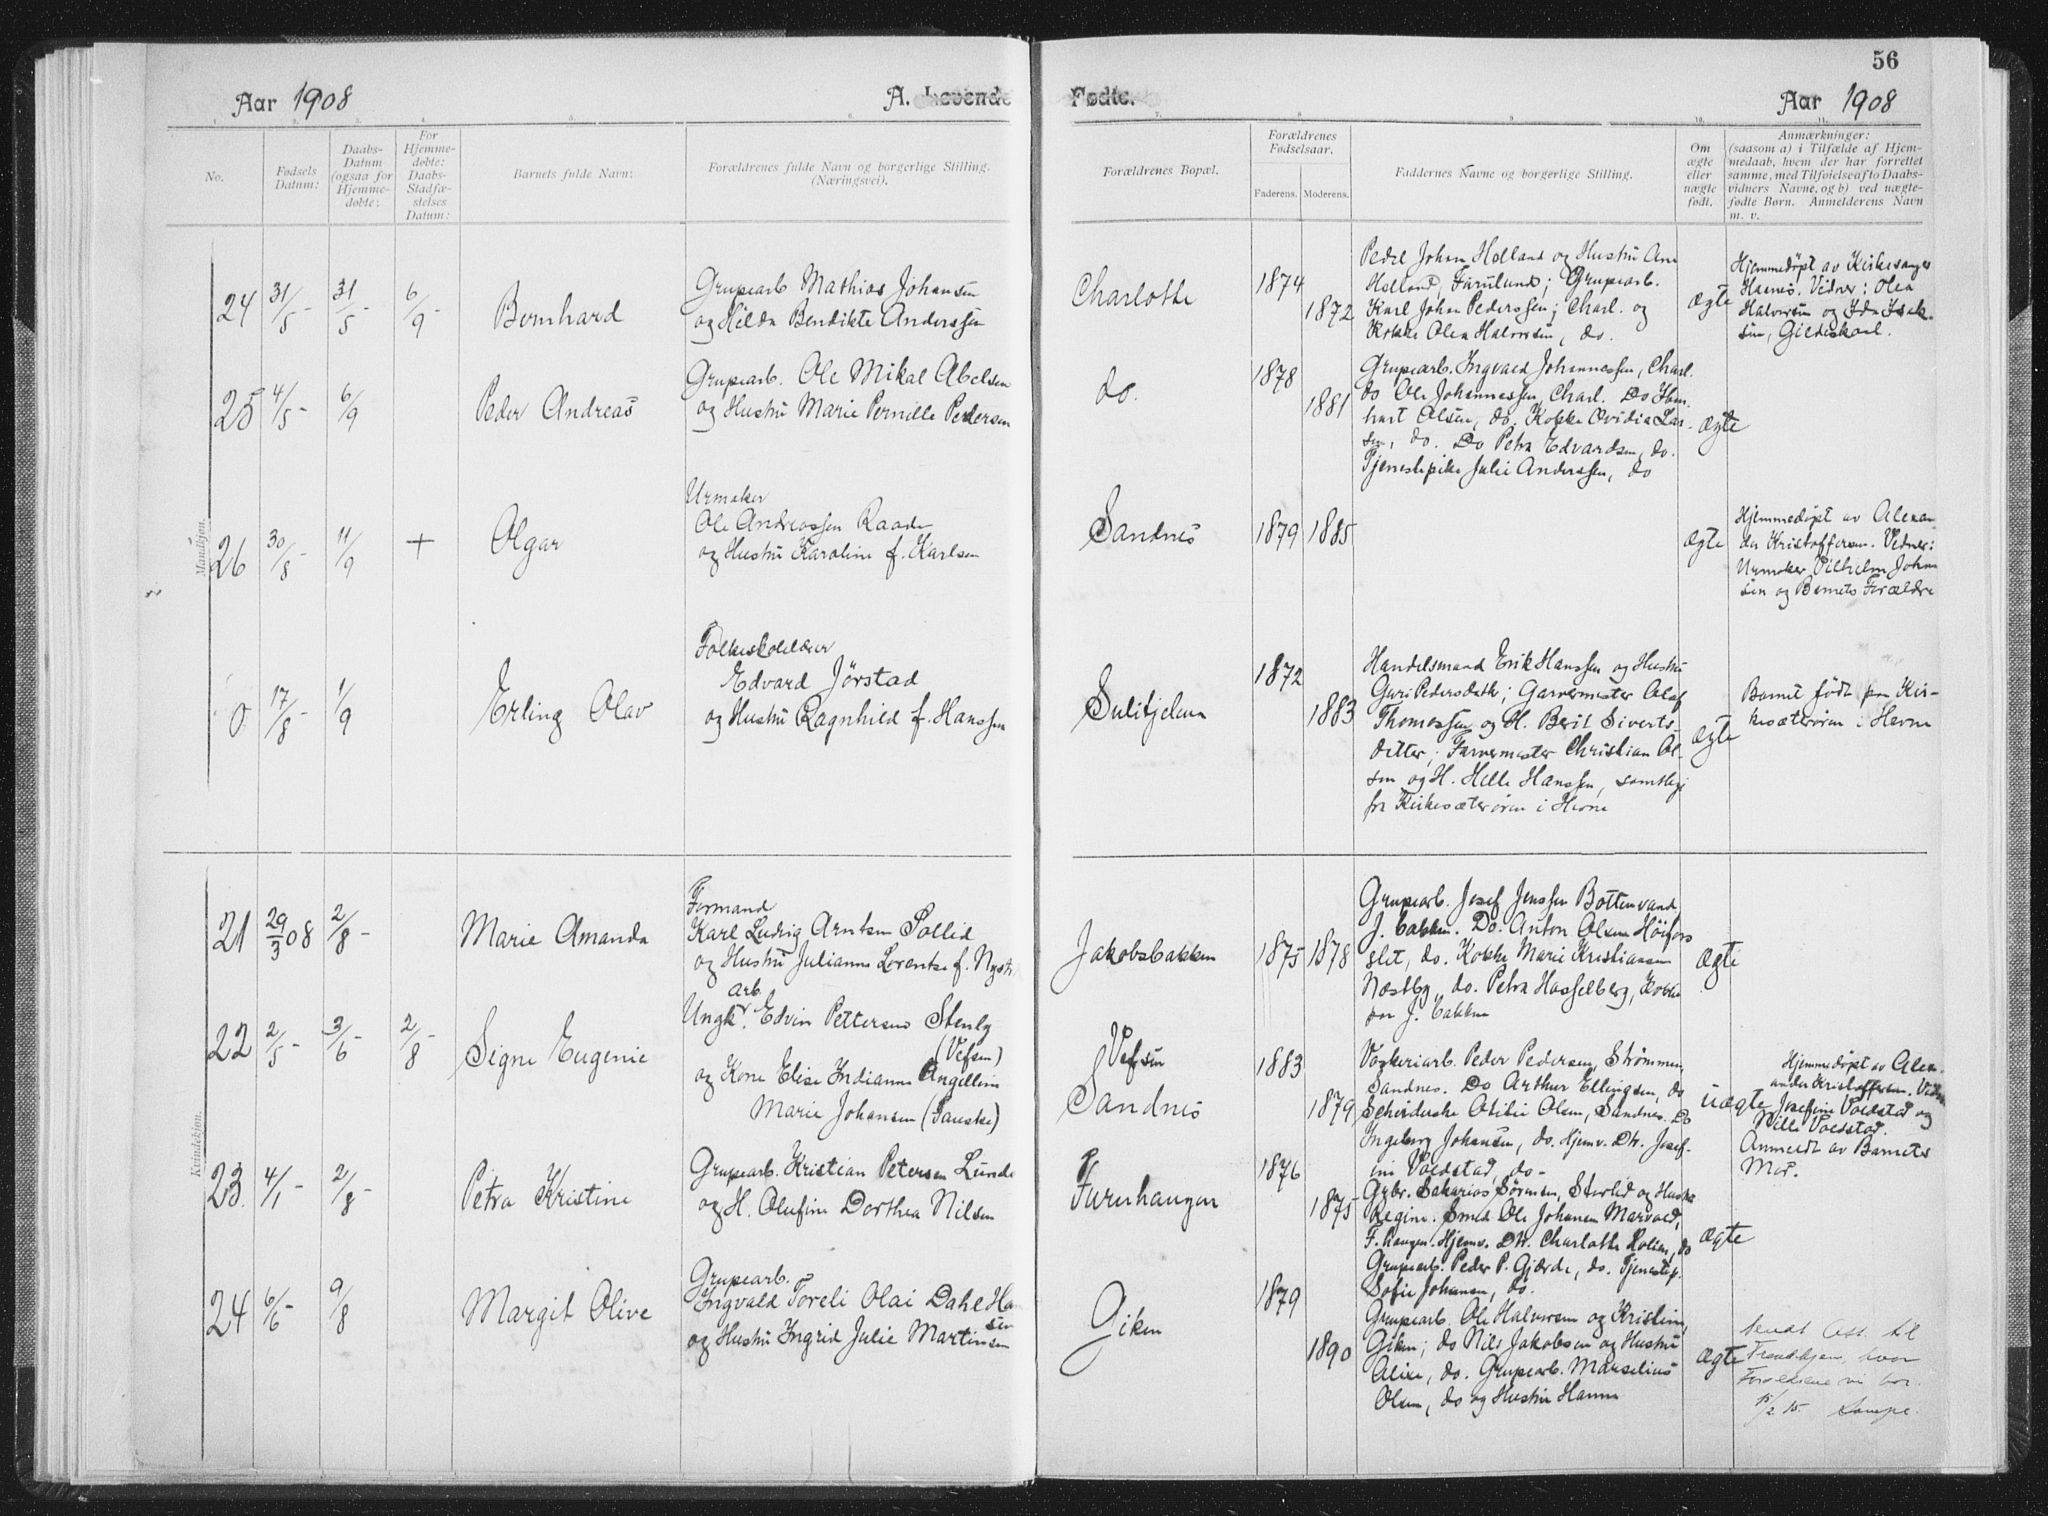 56
Aar 1908
A. Levende
Fødte.
Aar 1908
1.
2.
3.
4.
5.
6.
7.
8.
9.
10.
11.
No.
Fødsels
Datum:
Daabs-
Datum
(ogsaa for
Hjemme-
døbte:
For
Hjemme-
døbte:
Daabs-
Stadfæ-
stelses
Datum:
Barnets fulde Navn:
Forældrenes fulde Navn og borgerlige Stilling.
(Næringsvei).
Forældrenes Bopæl.
Forældrenes
Fødselsaar.
Faderens.
Moderens.
Faddernes Navne og borgerlige Stilling.
Om
ægte
eller
uægte
født.
Anmærkninger:
(saasom a) i Tilfælde af Hjem-
medaab, hvem der har forrettet
samme, med Tilføielse af to Daabs-
vidners Navne, og b) ved uægte-
fødte Børn. Anmelderens Navn
m. v.
Mandkjøn.
24
31/5 -
31/5 -
6/9 -
Bernhard
Grupearb. Mathias Johansen
og Hilda Bendikte Anderssen
Charlotte
1874
1872
Peder Johan Helland og Hustru Ane
Helland, Furulund; Grupearb.
Karl Johan Pederssen; Charl. og
Kokke Olea Halvorsen, do.
ægte
Hjemmedøpt av Kirkesanger
Haanes. Vidner: Olea
Halvorsen og Ida Isak-
sen, Gildeskaal.
25
4/5 -
6/9
Peder Andreas
Grupearb. Ole Mikal Abelsen
og Hustru Marie Pernille Pedersen
do.
1878
1881
Grupearb. Ingvald Johannessen, Charl.
do Ole Johannessen, Charl. Do
Olsen, do. Kokke Ovidia Lar-
sen, do. Do Petra Edvardsen, do.
Tjenestepike Julie Anderssen, do
ægte
26
30/8
11/9
+
Olgar
Urmaker
Ole Andreassen Raade
og Hustru Karoline f. Karlsen
Sandnes
1879
1885
ægte
Hjemmedøpt av Alexan
der Kristoffersen. Vidner:
Urmaker Vilhelm Johan
sen og Barnets Forældre
0
17/8 -
1/9
Erling Olav
Folkeskolelærer
Edvard Jørstad
og Hustru Ragnhild f. Hanssen
Sulitjelma
1872
1883
Handelsmand Erik Hanssen og Hustru
Guri Pedersdatter; Garvermester Olaf
Thomassen og H. Berit Siverts-
datter; Farvermester Christian Ol-
sen og H. Helle Hanssen, samtlige
fra Kirkesæterøren i Hevne
ægte
Barnet født paa Kir-
kesæterøren i Hevne
Kvindekjøn.
21
29/3 08
2/8 -
Marie Amanda
Formand
Karl Ludvig Arntsen Sollid
og Hustru Julianne Lorentse f.
Jakobsbakken
1875
1878
Grupearb. Josef Jenssen Bottenvand
J. bakken. Do. Anton Olsen
do. Kokke Marie Kristiansen
Næstby, do. Petra Hasselberg, Kokke
paa J. bakken
ægte
22
2/5 -
3/6 -
2/8 -
Signe Eugenie
Ungk. arb. Edvin Pettersen Stenby
(Vefsen)
og Kone Elise Indianne Angelline
Marie Johansen (Sauske)
Vefsen
Sandnes
1883
1879
Vaskeriarb. Peder Pedersen, Strømmen,
Sandnes. Do Arthur Ellingsen, do
Otilie Olsen, Sandnes. Do
Ingeborg Johansen, do. Hjemv. Dtr. Josef-
ine Voldstad, do -
uægte
Hjemmedøpt av Alex-
ander Kristoffersen. Vidn.
Josefine Voldstad og
Voldstad.
Anmeldt av Barnets
Mor.
23.
4/1 -
2/8 -
Petra Kristine
Grupearb. Kristian Petersen Lunde
og H. Olufine Dorthea Nilsen
Furuhaugen
1876
1875
Gbr. Sakarias Sørensen, Storlid og Hustru
Regine. Smed Ole Johansen Marvold,
F. haugen. Hjemv. Dtr. Charlotte do
Grupearb. Peder P. Gjærde, do. Tjenestep.
Sofie Johansen, do.
ægte
24
6/6 -
9/8
Margit Olive
Grupearb.
Ingvald Toreli Olai Dahl Han
sen
og Hustru Ingrid Julie Martinsen
Giken
1879
1890
Grupearb. Ole Halvorsen og Kristine,
Giken; do Nils Jakobsen og Hustru
Alice, do. Grupearb. Marselius
Olsen, do og Hustru Hanna
ægte
Sendt Att. til
hvor
Forældrene nu bor.
15/2 15.